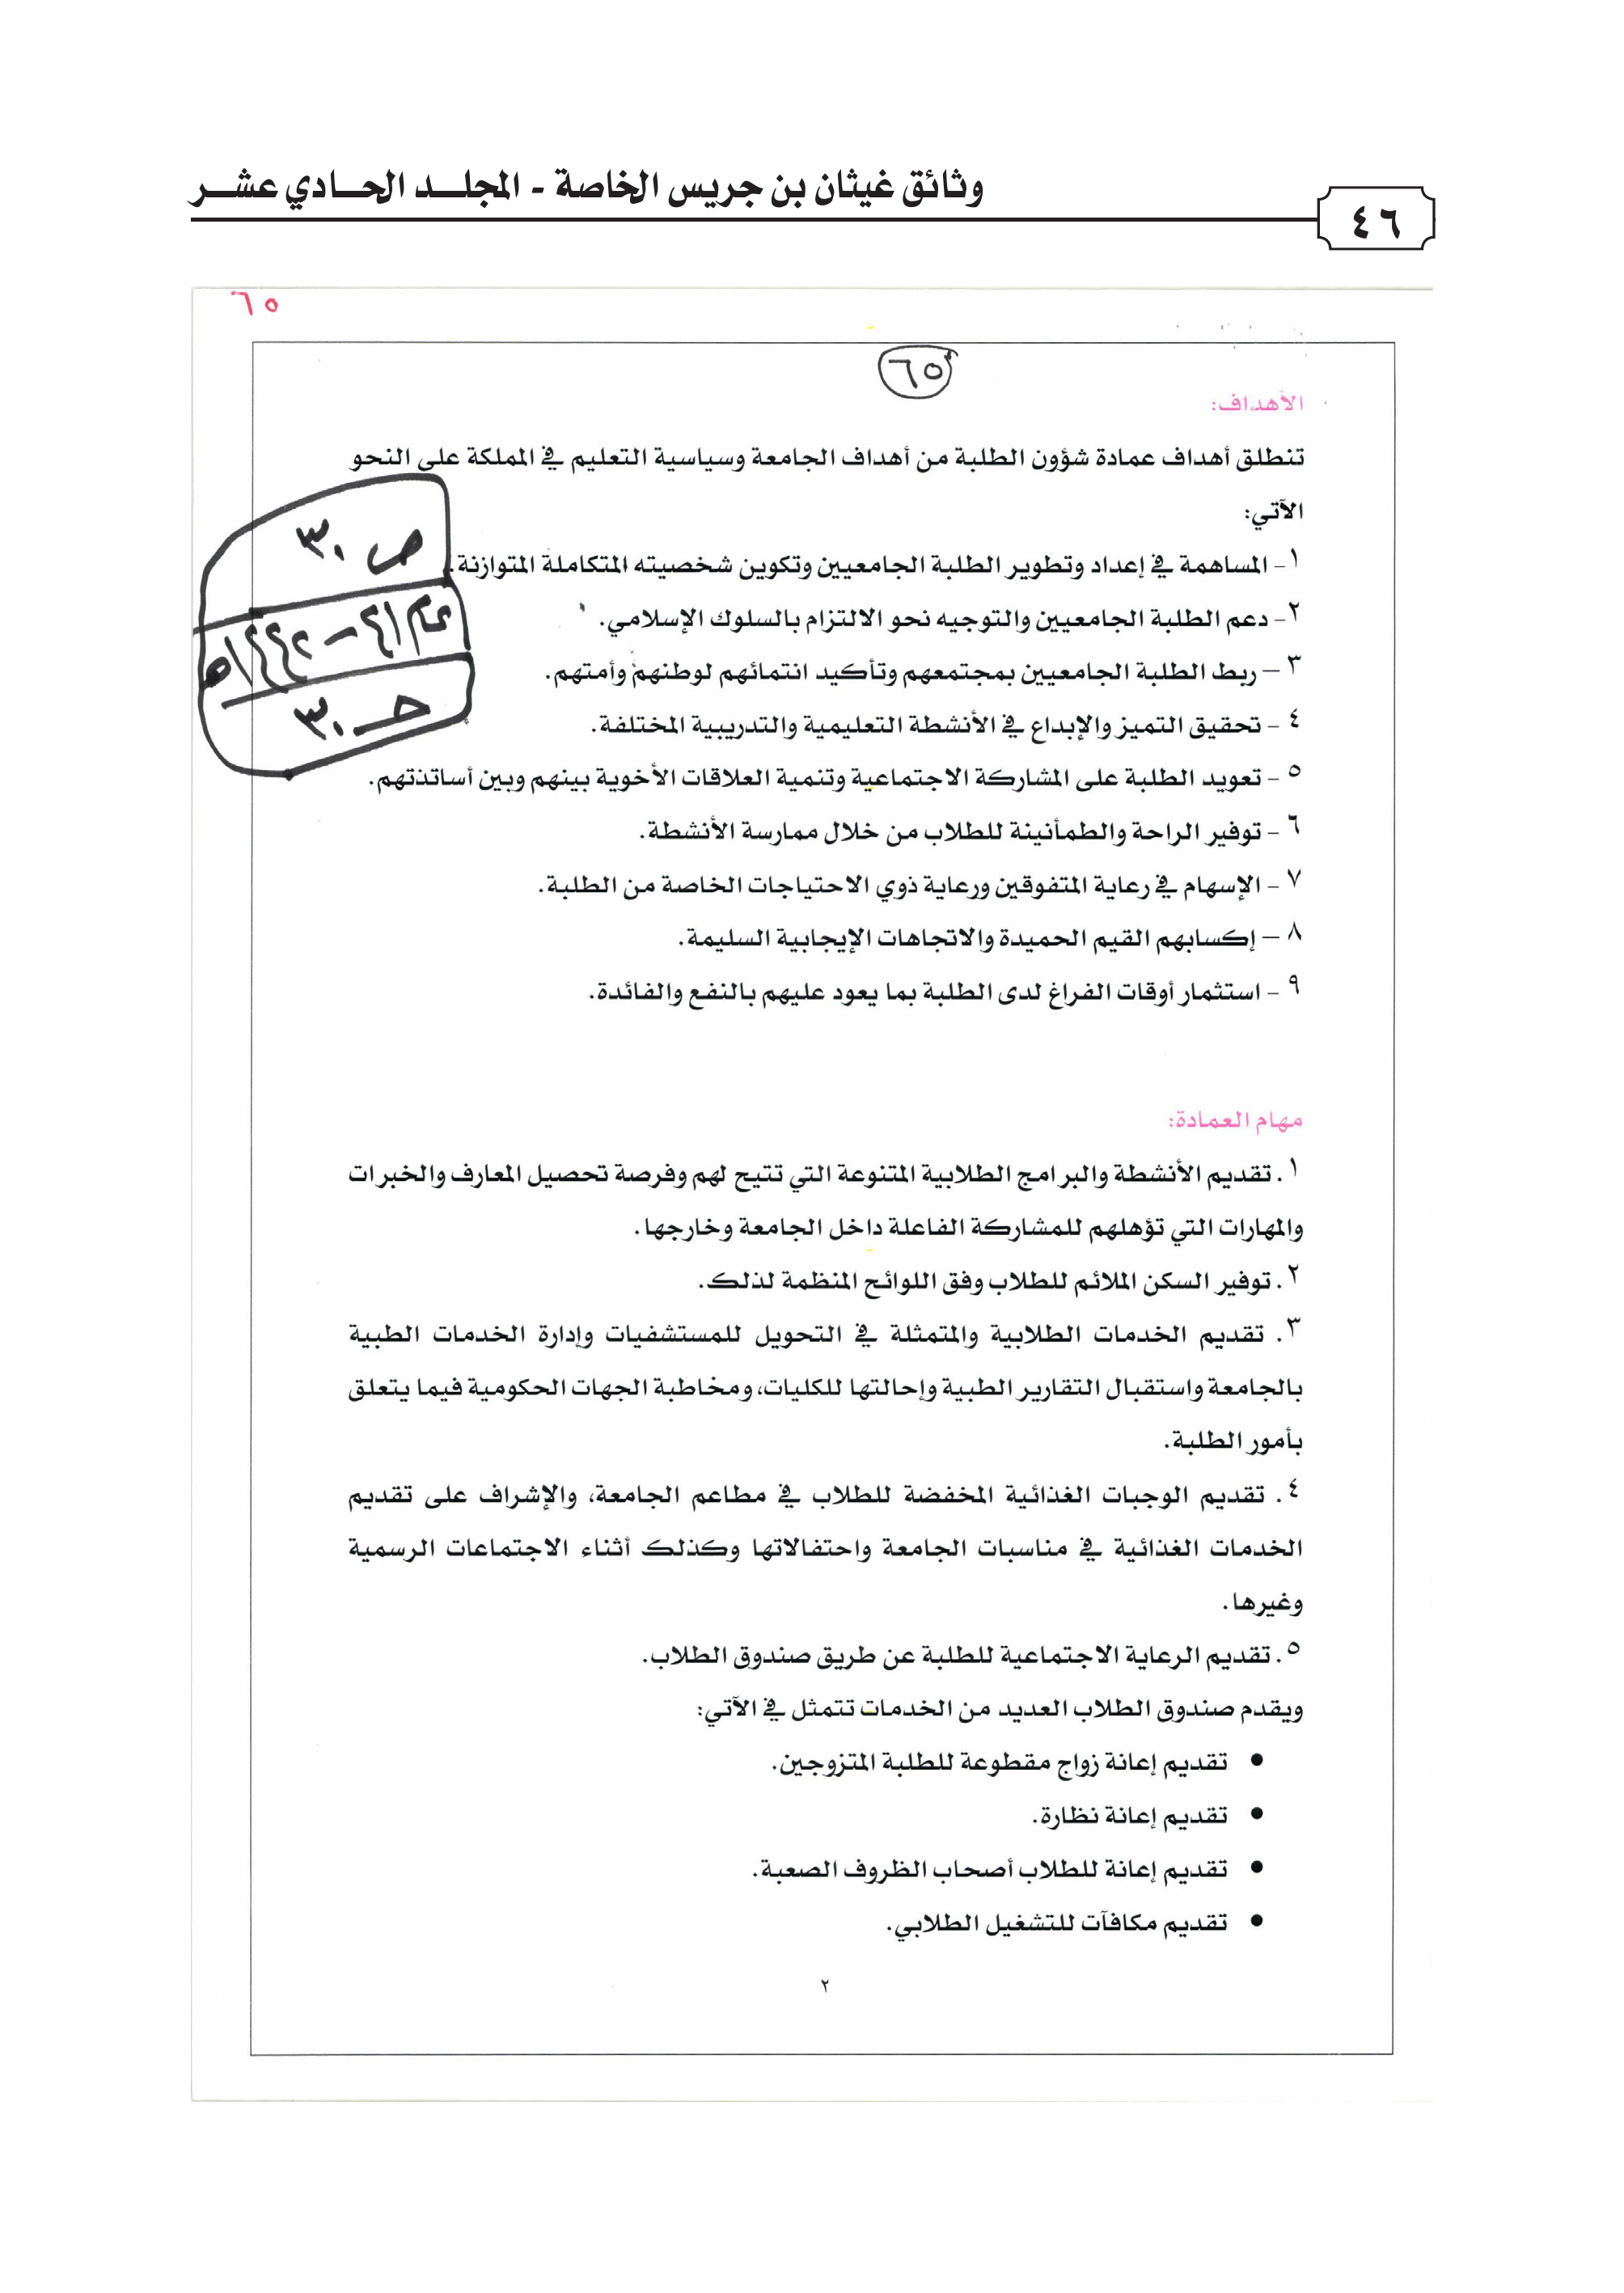 وثائق غيثان بن جريس الخاصة - المجلـــد الحـــادي عشـــر
٤٦
٦٥
٦٥
الأهداف:
تنطلق أهداف عمادة شؤون الطلبة من أهداف الجامعة وسياسية التعليم في المملكة على النحو
الآتي:
١- المساهمة في إعداد وتطوير الطلبة الجامعيين وتكوين شخصيته المتكاملة المتوازنة.
٢- دعم الطلبة الجامعيين والتوجيه نحو الالتزام بالسلوك الإسلامي.
٣ – ربط الطلبة الجامعيين بمجتمعهم وتأكيد انتمائهم لوطنهم وأمتهم.
٤ - تحقيق التميز والإبداع في الأنشطة التعليمية والتدريبية المختلفة.
٥ - تعويد الطلبة على المشاركة الاجتماعية وتنمية العلاقات الأخوية بينهم وبين أساتذتهم.
٦ - توفير الراحة والطمأنينة للطلاب من خلال ممارسة الأنشطة.
٧ - الإسهام في رعاية المتفوقين ورعاية ذوي الاحتياجات الخاصة من الطلبة.
٨ – إكسابهم القيم الحميدة والاتجاهات الإيجابية السليمة.
٩ - استثمار أوقات الفراغ لدى الطلبة بما يعود عليهم بالنفع والفائدة.
ص ٣٠
عام ٤١ – ١٤٤٢هـ
حـ ٣٠
مهام العمادة:
١. تقديم الأنشطة والبرامج الطلابية المتنوعة التي تتيح لهم وفرصة تحصيل المعارف والخبرات
والمهارات التي تؤهلهم للمشاركة الفاعلة داخل الجامعة وخارجها.
٢. توفير السكن الملائم للطلاب وفق اللوائح المنظمة لذلك.
٣. تقديم الخدمات الطلابية والمتمثلة في التحويل للمستشفيات وإدارة الخدمات الطبية
بالجامعة واستقبال التقارير الطبية وإحالتها للكليات، ومخاطبة الجهات الحكومية فيما يتعلق
بأمور الطلبة.
٤. تقديم الوجبات الغذائية المخفضة للطلاب في مطاعم الجامعة، والإشراف على تقديم
الخدمات الغذائية في مناسبات الجامعة واحتفالاتها وكذلك أثناء الاجتماعات الرسمية
وغيرها.
٥. تقديم الرعاية الاجتماعية للطلبة عن طريق صندوق الطلاب.
ويقدم صندوق الطلاب العديد من الخدمات تتمثل في الآتي:
• تقديم إعانة زواج مقطوعة للطلبة المتزوجين.
• تقديم إعانة نظارة.
• تقديم إعانة للطلاب أصحاب الظروف الصعبة.
• تقديم مكافآت للتشغيل الطلابي.
٢